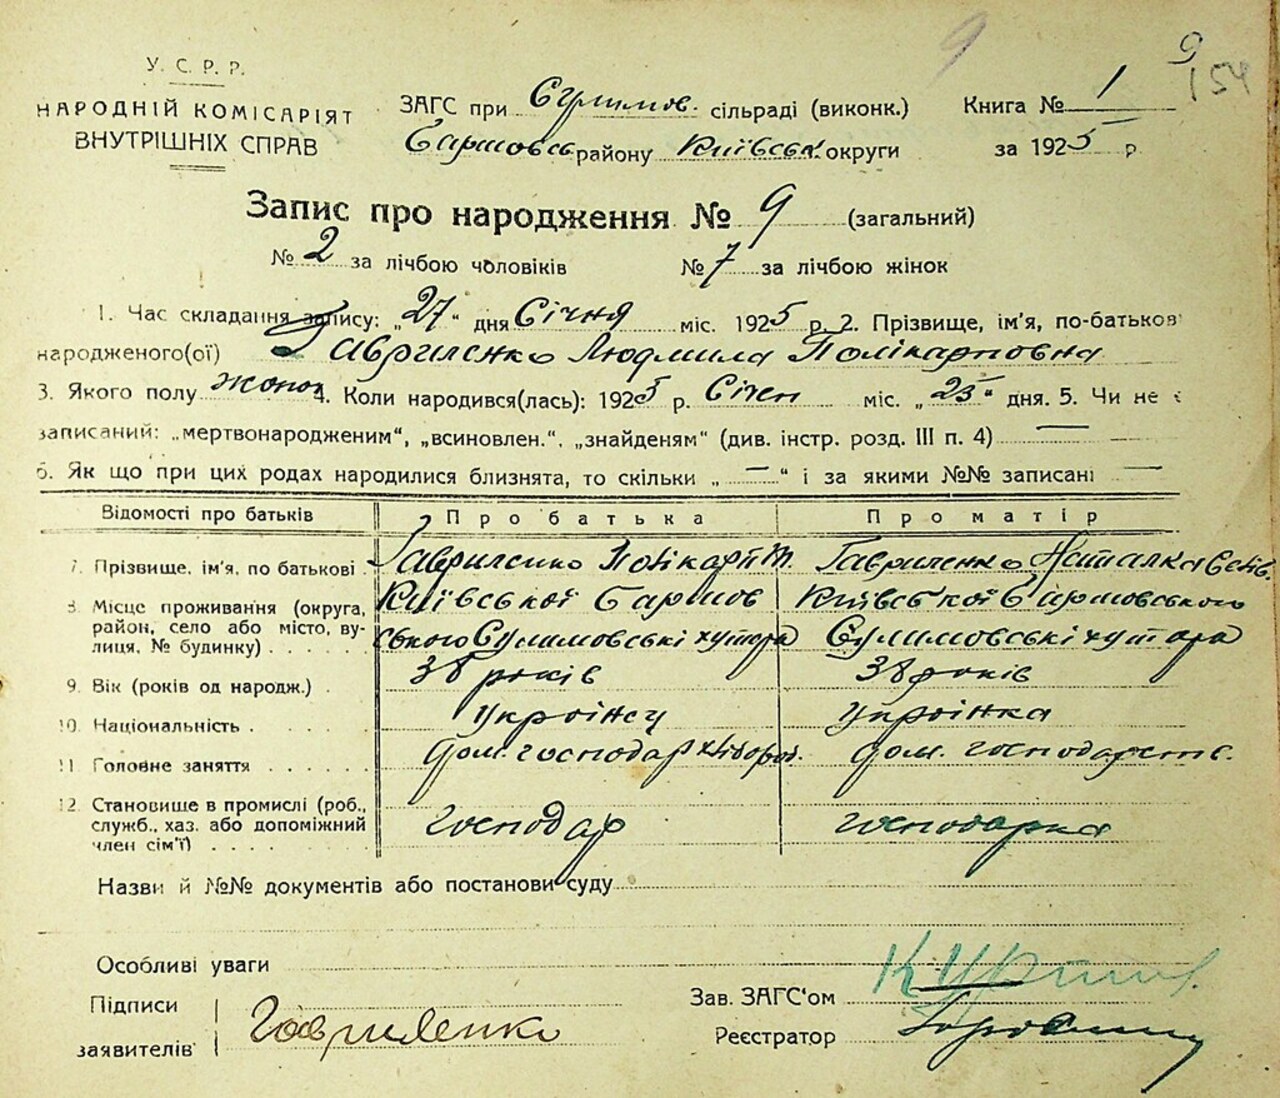 9
9
154
У. С. Р. Р.
НАРОДНІЙ КОМІСАРІЯТ
ВНУТРІШНІХ СПРАВ
ЗАГС при Сулимов. сільраді (виконк.)
Баришовсь району Київськ. округи
Книга № 1
за 1925 р.
Запис про народження № 9 (загальний)
№ 2 за лічбою чоловіків № 7 за лічбою жінок
1. Час складання запису: „27“ дня Січня міс. 1925 р. 2. Прізвище, ім'я, по-батькові
народженого(ої) Гавриленко Людмила Полікарповна
3. Якого полу жоноч 4. Коли народився(лась): 1925 р. Січен міс. „25“ дня. 5. Чи не є
записаний: „мертвонародженим“, „всиновлен.“, „знайденям“ (див. інстр. розд. III п. 4) —
6. Як що при цих родах народилися близнята, то скільки „—“ і за якими №№ записані —
Відомості про батьків Про батька Про матір
7. Прізвище, ім'я, по батькові . Гавриленко Полікарп Т. Гавриленко Наталка Селів.
8. Місце проживання (округа, Київської Баришов Київської Баришовського
район, село або місто, ву- ського Сулимовські хутора Сулимовські хутора
лиця, № будинку) . . . . .
9. Вік (років од народж.) . 38 років 38 років
10. Національність . українец українка
11. Головне заняття . . . . . . дом. господар хлібороб. дом. господарств.
12. Становище в промислі (роб., господар господарка
служб., хаз. або допоміжний
член сім'ї) . . . .
Назви й №№ документів або постанови суду
Особливі уваги
Підписи
заявителів Гавриленко
Зав. ЗАГС'ом
Реєстратор